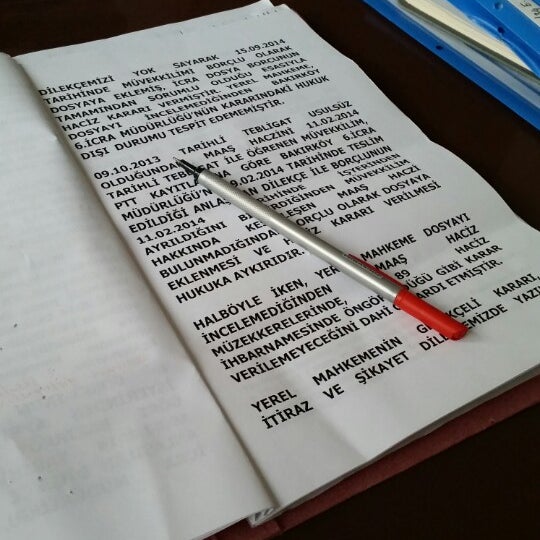 DİLEKÇEMİZİ YOK SAYARAK 15.09.2014
TARİHİNDE MÜVEKKİLİMİ BORÇLU OLARAK
DOSYAYA EKLEMİŞ, İCRA DOSYA BORCUNUN
TAMAMINDAN SORUMLU OLDUĞU ESASIYLA
HACİZ KARARI VERMİŞTİR. YEREL MAHKEME,
DOSYAYI İNCELEMEDİĞİNDEN BAKIRKÖY
6.İCRA MÜDÜRLÜĞÜ'NÜN KARARINDAKİ HUKUK
DIŞI DURUMU TESPİT EDEMEMİŞTİR.
09.10.2013 TARİHLİ TEBLİGAT USULSÜZ
OLDUĞUNDAN MAAŞ HACZİNİ 11.02.2014
TARİHLİ İLE ÖĞRENEN MÜVEKKİLİM
PTT GÖRE BAKIRKÖY 6.İCRA
MÜDÜRLÜĞÜ' .02.2014 TARİHİNDE TESLİM
EDİLDİĞİ DİLEKÇE İLE BORÇLUNUN
11.02.2014 İŞYERİNDEN
AYRILDIĞINI MÜVEKKİLİM
HAKKINDA MAAŞ HACZİ
BULUNMADIĞINDAN BORÇLU OLARAK DOSYAYA
EKLENMESİ VE KARARI VERİLMESİ
HUKUKA AYKIRIDIR.
HALBÖYLE İKEN, MAHKEME DOSYAYI
İNCELEMEDİĞİNDEN MAAŞ HACİZ
MÜZEKKERELERİNDE, 89 HACİZ
İHBARNAMESİNDE GİBİ KARAR
VERİLEMEYECEĞİNİ DAHİ ETMİŞTİR.
YEREL MAHKEMENİN KARARI,
İTİRAZ VE ŞİKAYET